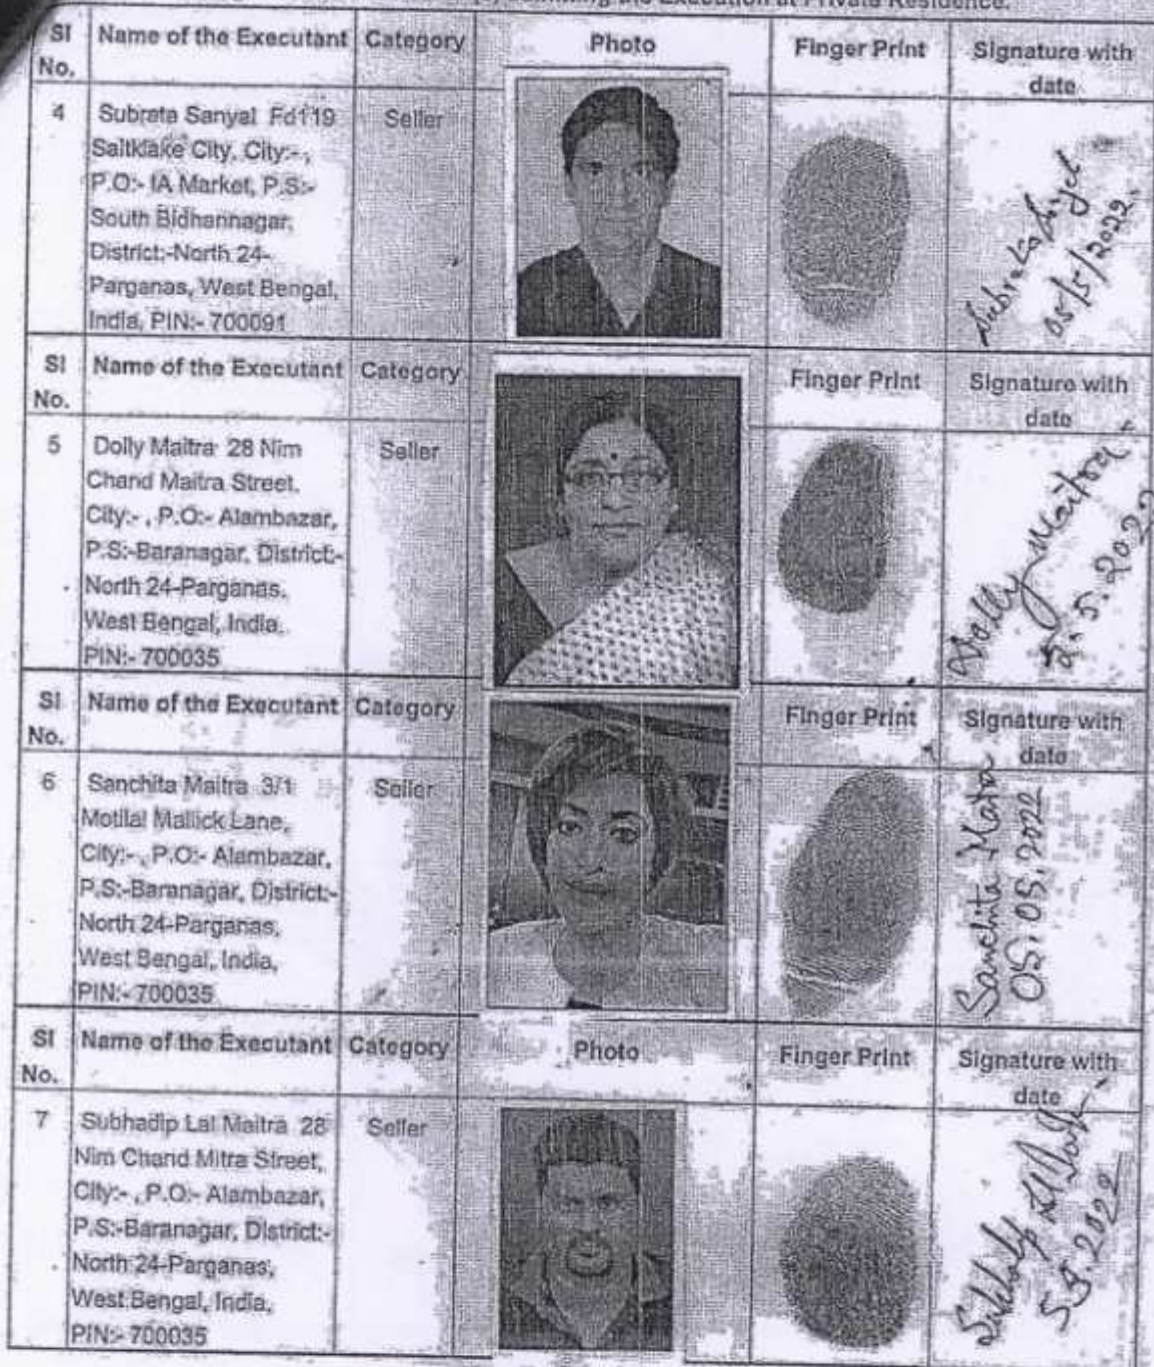 the Execution at Private Residence.
Sl No. Name of the Executant Category Photo Finger Print Signature with date
4 Subrata Sanyal Fd119 Seller
Saltklake City, City:- ,
P.O:- IA Market, P.S:-
South Bidhannagar,
District:-North 24-
Parganas, West Bengal,
India, PIN:- 700091
05/5/2022.
Sl No. Name of the Executant Category Finger Print Signature with date
5 Dolly Maitra 28 Nim Seller
Chand Maitra Street,
City:- , P.O:- Alambazar,
P.S:-Baranagar, District:-
North 24-Parganas,
West Bengal, India,
PIN:- 700035
Dolly Maitra
5.2022
Sl No. Name of the Executant Category Finger Print Signature with date
6 Sanchita Maitra 3/1 Seller
Motilal Mallick Lane,
City:- , P.O:- Alambazar,
P.S:-Baranagar, District:-
North 24-Parganas,
West Bengal, India,
PIN:- 700035
Sanchita
05.05.2022
Sl No. Name of the Executant Category Photo Finger Print Signature with date
7 Subhadip Lal Maitra 28 Seller
Nim Chand Mitra Street,
City:- , P.O:- Alambazar,
P.S:-Baranagar, District:-
North 24-Parganas,
West Bengal, India,
PIN:- 700035
5.5.2022